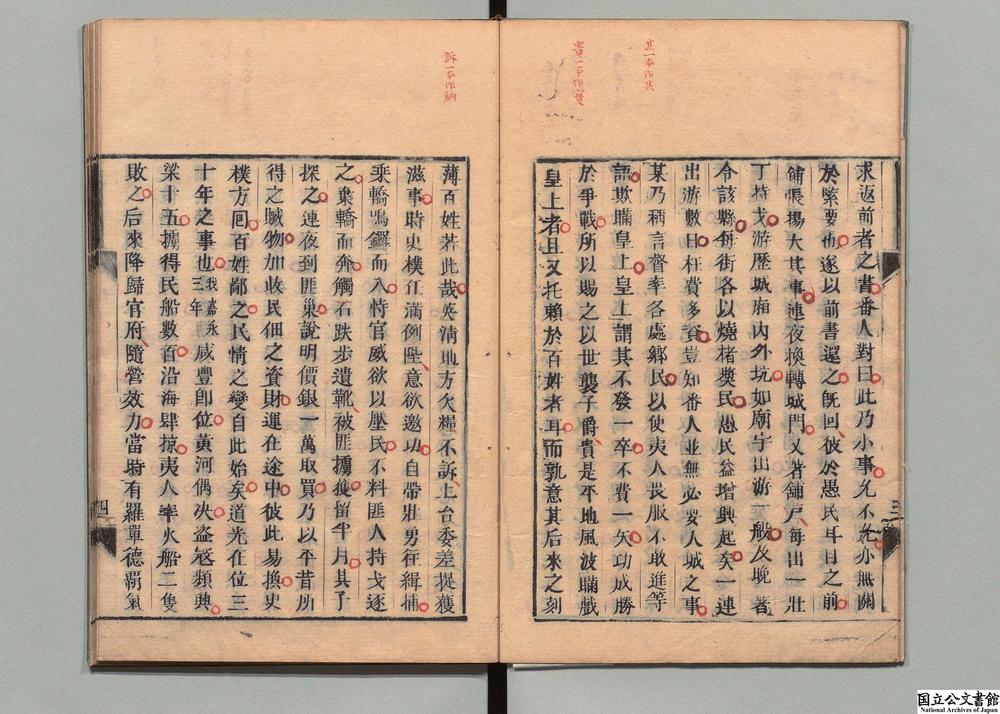 某一本作其
貴一本作實
求返前者之書番人對曰此乃小事允不允亦無關
於緊要也遂以前書還之旣回彼於愚民耳目之前
鋪張揚大其事連夜換轉城門又著鋪戶每出一壯
丁持戈游歷城廂內外坑如廟宇出游一般及晚著
令該縣每街各以燒楮獎民愚民益增興起矣一連
出游數日枉費多資豈知番人並無必要入城之事
某乃稱言督率各處鄉民以使夷人畏服不敢進等
語欺瞞皇上皇上謂其不發一卒不費一矢功成勝
於爭戰所以賜之以世襲子爵貴是平地風波瞞戲
皇上者且又托賴於百姓者耳而孰意其后來之刻
三
訴一本作納
薄百姓若此哉英清地方欠糧不訴上台委差提獲
滋事時史樸任滿例陞意欲邀功自帶壯男往緝捕
乘轎鳴鑼而入恃官威欲以壓民不料匪人持戈逐
之棄轎而奔觸石跌步遺靴被匪擄獲留半月其子
探之連夜到匪巢說明價銀一萬取買乃以平昔所
得之贓物加收民佃之資財運在途中彼此易換史
樸方囘百姓鄙之民情之變自此始矣道光在位三
十年之事也我嘉永三年咸豐卽位黃河偶决盜寇頻興
梁十五擄得民船數百沿海肆掠夷人率火船二隻
敗之后來降歸官府隨營效力當時有羅單德覇氣
四
国立公文書館
National Archives of Japan